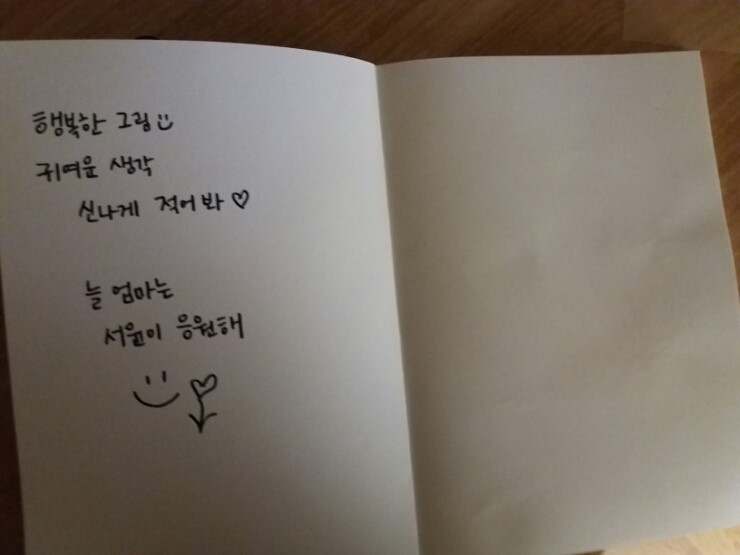 행복한 그림
귀여운 생각
신나게 적어봐 ♡
늘 엄마는
서윤이 응원해